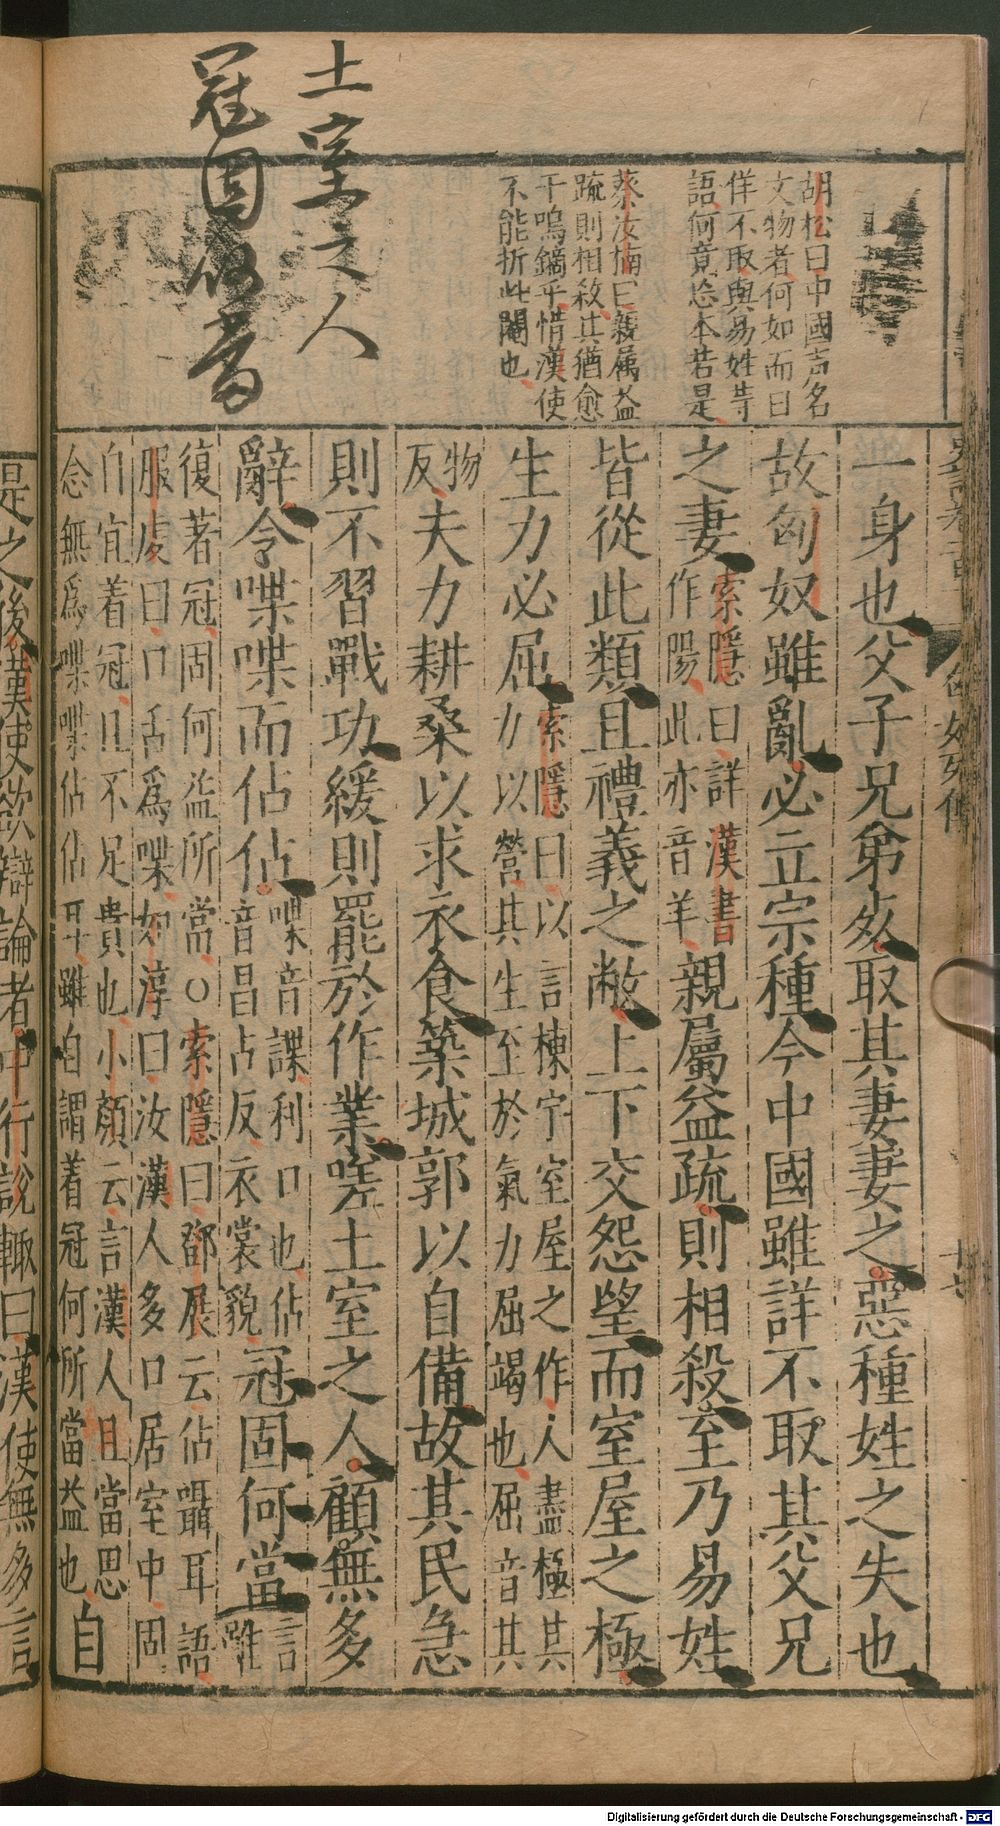 土室之人
冠固何當
胡松曰中國言名
文物者何如而曰
佯不取與易姓等
語何竟恣本若是
蔡汝楠曰親屬益
疏則相殺其猶愈
干嗚鏑乎惜漢使
不能折此閹也
一身也父子兄弟妛取其妻妻之惡種姓之失也
故匈奴雖亂必立宗種今中國雖詳不取其父兄
之妻
索隱曰詳漢書
作陽此亦音羊
親屬益疏則相殺至乃易姓
皆從此類且禮義之敝上下交怨望而室屋之極
生力必屈
索隱曰以言棟宇室屋之作人盡極其
力以營其生至於氣力屈竭也屈音其
物
反
夫力耕桑以求衣食築城郭以自備故其民急
則不習戰功緩則罷於作業嗟土室之人顧無多
辭令喋喋而佔佔
喋音諜利口也佔
音昌占反衣裳貌
冠固何當
言
雖
復著冠固何益所當○索隱曰鄧展云佔囁耳語
服虔曰口舌爲喋如淳曰汝漢人多口居室中固
自宜着冠且不足貴也小顏云言漢人且當思
念無爲喋喋佔佔耳雖自謂着冠何所當益也
自
是之後漢使欲辯論者中行說輒曰漢使無多言
Digitalisierung gefördert durch die Deutsche Forschungsgemeinschaft - DFG